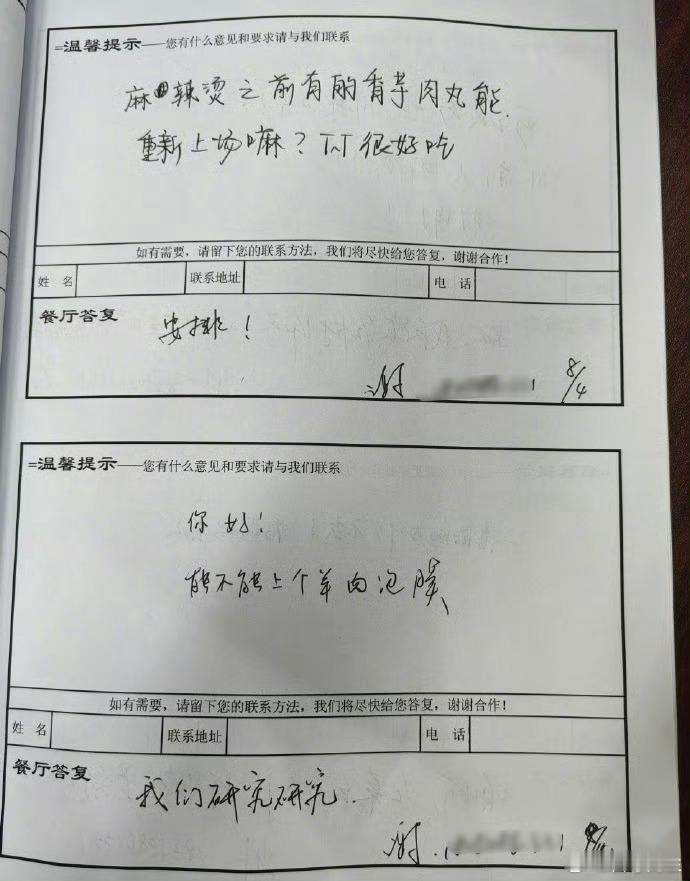 =温馨提示——您有什么意见和要求请与我们联系
麻辣烫之前有的香芋肉丸能
重新上场嘛？TT很好吃
如有需要，请留下您的联系方法，我们将尽快给您答复，谢谢合作！
姓 名 联系地址 电 话
餐厅答复
安排！
谢 8/4
=温馨提示——您有什么意见和要求请与我们联系
你好！
能不能上个羊肉泡馍
如有需要，请留下您的联系方法，我们将尽快给您答复，谢谢合作！
姓 名 联系地址 电 话
餐厅答复
我们研究研究.
谢.